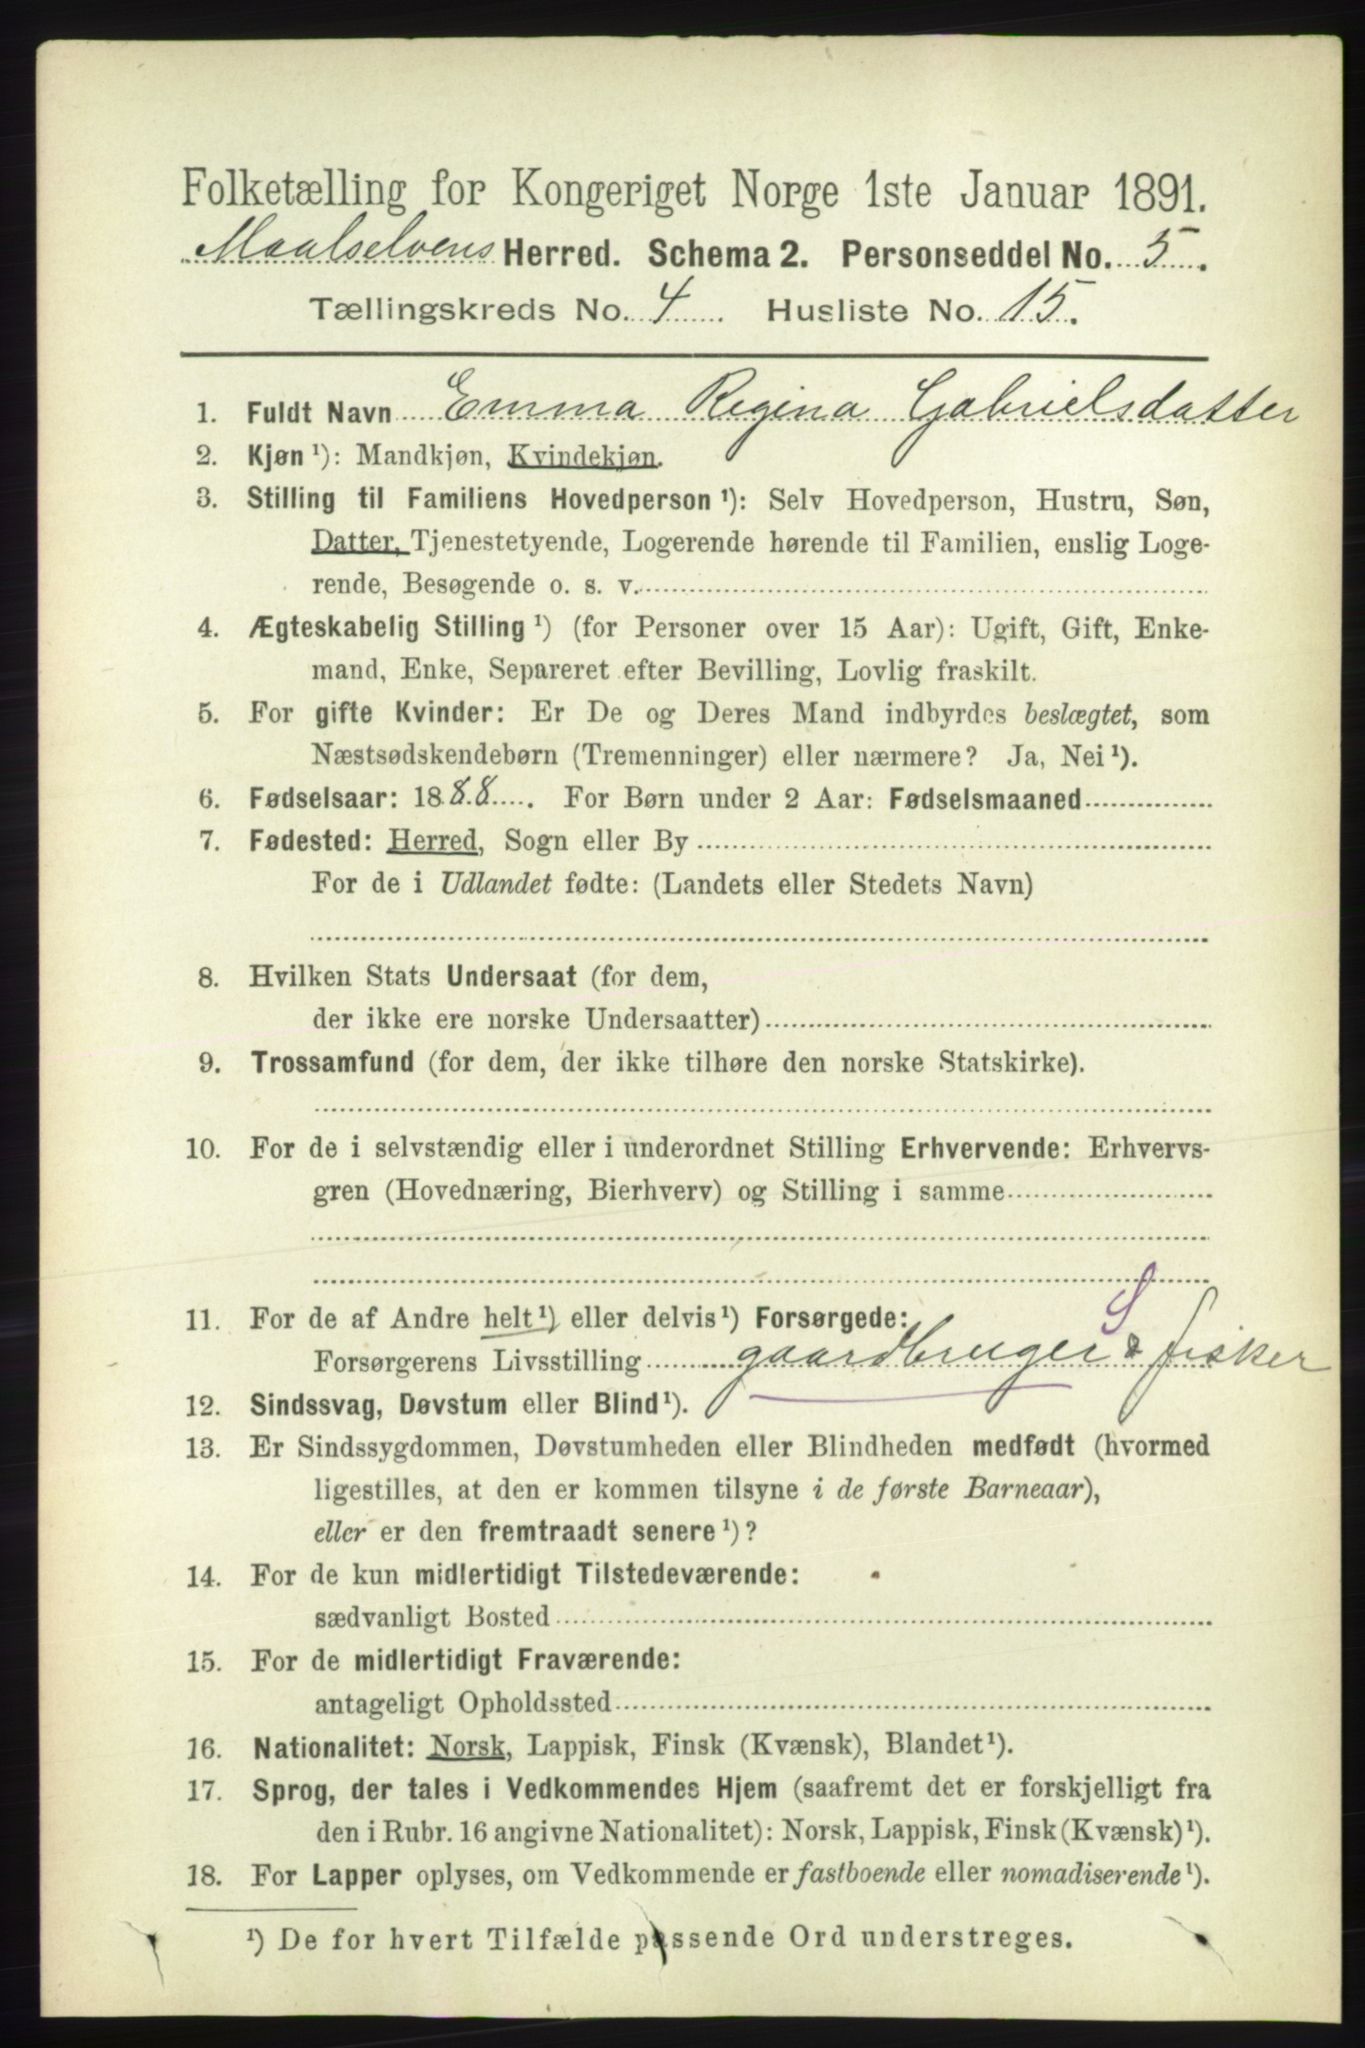 Folketælling for Kongeriget Norge 1ste Januar 1891.
Maalselvens Herred. Schema 2. Personseddel No. 5.
Tællingskreds No. 4 Husliste No. 15.
1. Fuldt Navn Emma Regina Gabrielsdatter
2. Kjøn ¹): Mandkjøn, Kvindekjøn.
3. Stilling til Familiens Hovedperson ¹): Selv Hovedperson, Hustru, Søn,
Datter, Tjenestetyende, Logerende hørende til Familien, enslig Loge-
rende, Besøgende o. s. v.
4. Ægteskabelig Stilling ¹) (for Personer over 15 Aar): Ugift, Gift, Enke-
mand, Enke, Separeret efter Bevilling, Lovlig fraskilt.
5. For gifte Kvinder: Er De og Deres Mand indbyrdes beslægtet, som
Næstsødskendebørn (Tremenninger) eller nærmere? Ja, Nei ¹).
6. Fødselsaar: 1888. For Børn under 2 Aar: Fødselsmaaned
7. Fødested: Herred, Sogn eller By
For de i Udlandet fødte: (Landets eller Stedets Navn)
8. Hvilken Stats Undersaat (for dem,
der ikke ere norske Undersaatter)
9. Trossamfund (for dem, der ikke tilhøre den norske Statskirke).
10. For de i selvstændig eller i underordnet Stilling Erhvervende: Erhvervs-
gren (Hovednæring, Bierhverv) og Stilling i samme
11. For de af Andre helt ¹) eller delvis ¹) Forsørgede: S
Forsørgerens Livsstilling gaardbruger & fisker
12. Sindssvag, Døvstum eller Blind ¹).
13. Er Sindssygdommen, Døvstumheden eller Blindheden medfødt (hvormed
ligestilles, at den er kommen tilsyne i de første Barneaar),
eller er den fremtraadt senere ¹)?
14. For de kun midlertidigt Tilstedeværende:
sædvanligt Bosted
15. For de midlertidigt Fraværende:
antageligt Opholdssted
16. Nationalitet: Norsk, Lappisk, Finsk (Kvænsk), Blandet ¹).
17. Sprog, der tales i Vedkommendes Hjem (saafremt det er forskjelligt fra
den i Rubr. 16 angivne Nationalitet): Norsk, Lappisk, Finsk (Kvænsk) ¹).
18. For Lapper oplyses, om Vedkommende er fastboende eller nomadiserende ¹).
¹) De for hvert Tilfælde passende Ord understreges.